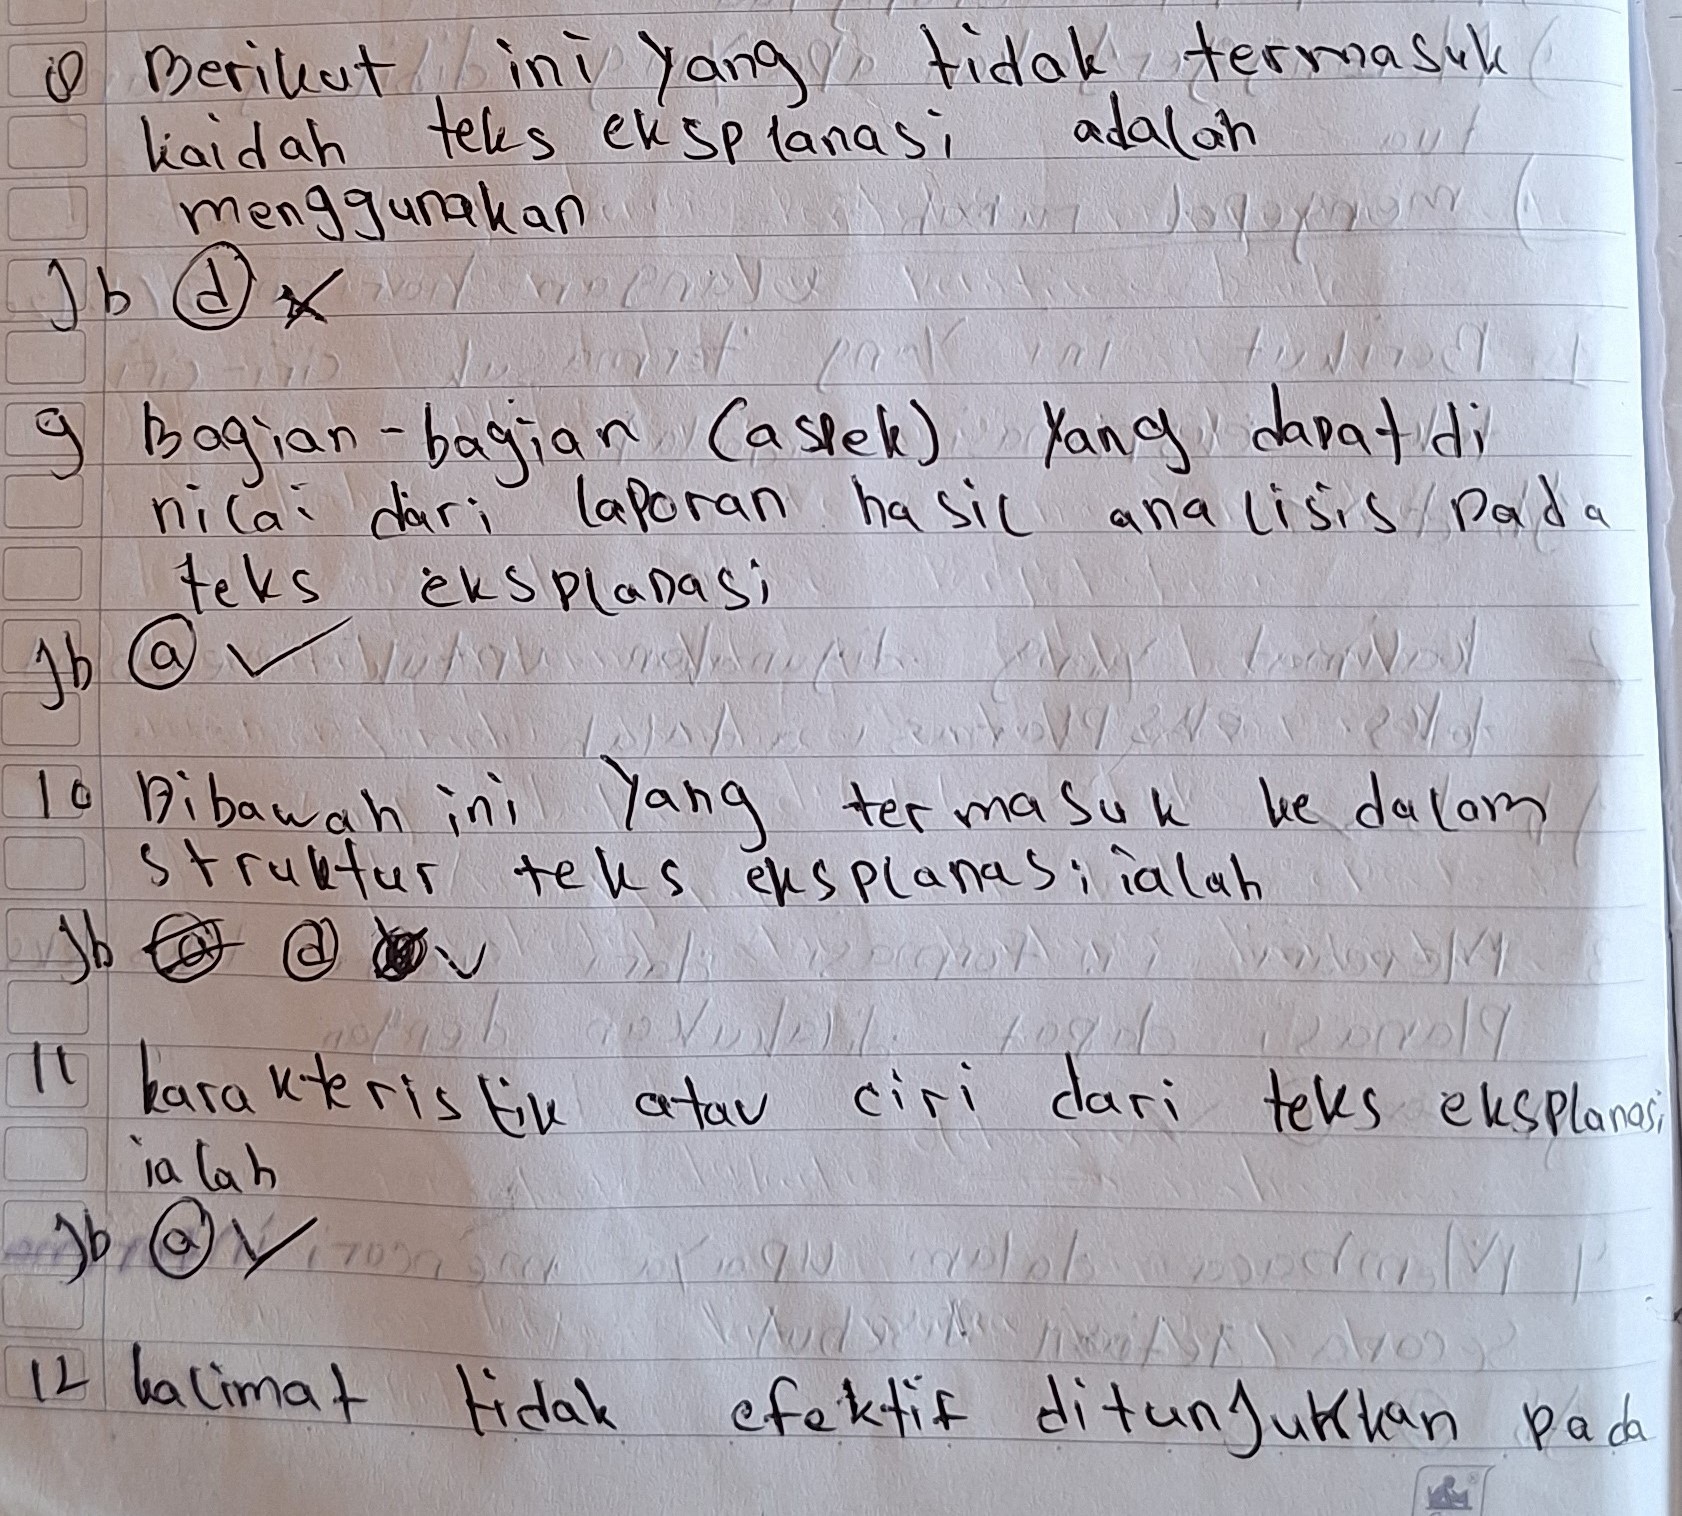 8 Berikut ini yang tidak termasuk
kaidah teks eksplanasi adalah
menggunakan
Jb d
9 Bagian-bagian (aspek) yang dapat di
nilai dari laporan hasil analisis pada
teks eksplanasi
Jb a
10 Dibawah ini yang termasuk ke dalam
struktur teks eksplanasi ialah
Jb d
11 karakteristik atau ciri dari teks eksplanasi
ialah
Jb a
12 kalimat tidak efektif ditunjukkan pada